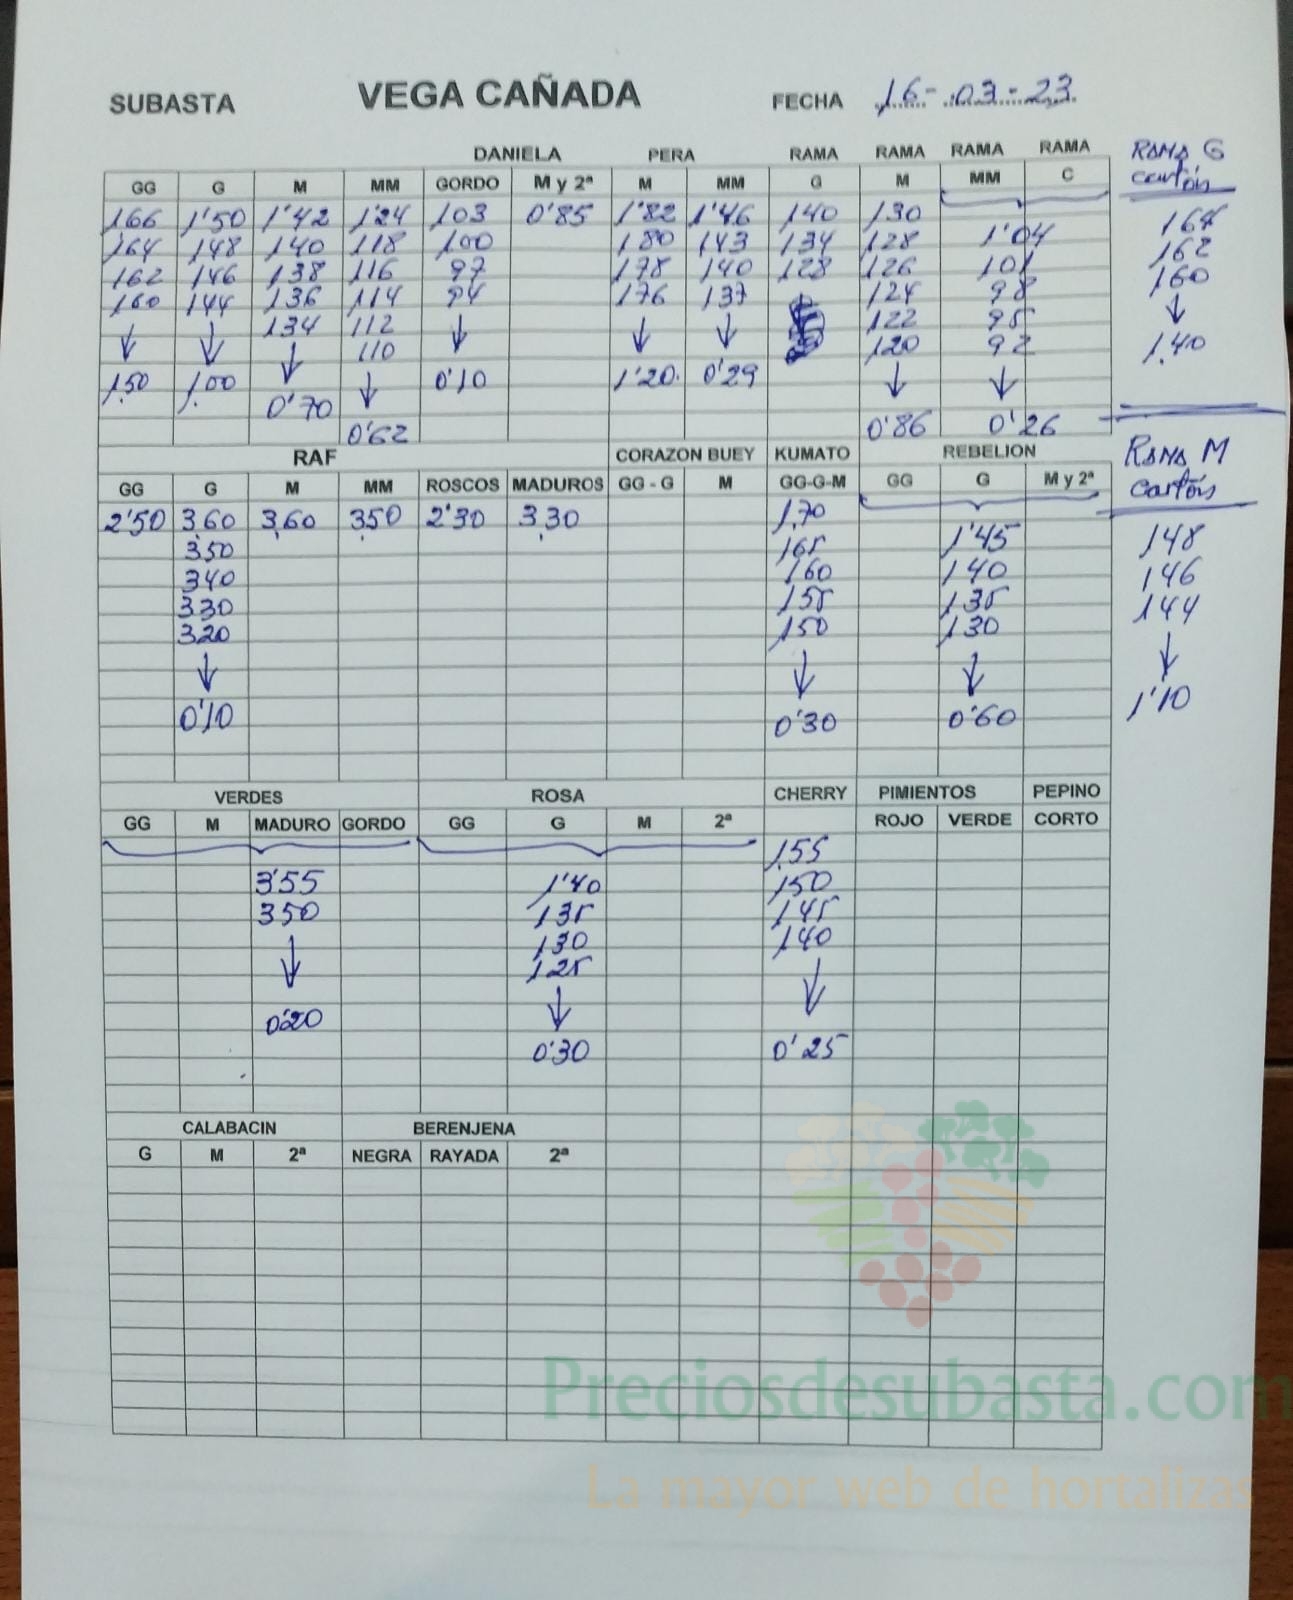 SUBASTA VEGA CAÑADA FECHA 16-03-23
DANIELA PERA RAMA RAMA RAMA RAMA RAMA G
GG G M MM GORDO M y 2ª M MM G M MM C cartón
1,66 1'50 1'42 1'24 103 0'85 1'82 1'46 140 130 164
164 148 140 118 100 180 143 134 128 1'04 162
162 146 138 116 97 178 140 128 126 101 160
160 144 136 114 94 176 137 124 98 ↓
↓ ↓ 134 112 ↓ ↓ ↓ 122 95 1,40
1,50 1,00 ↓ 110 0'10 1'20 0'29 120 92
0'70 ↓ ↓ ↓
0'62 0'86 0'26
RAF CORAZON BUEY KUMATO REBELION RAMA M
GG G M MM ROSCOS MADUROS GG - G M GG-G-M GG G M y 2ª cartón
2'50 3,60 3,60 3,50 2'30 3,30 1,70 148
350 165 1'45 146
340 160 140 144
330 155 135 ↓
320 150 130 1'10
↓ ↓ ↓
0'10 0'30 0'60
VERDES ROSA CHERRY PIMIENTOS PEPINO
GG M MADURO GORDO GG G M 2ª ROJO VERDE CORTO
1,55
3'55 1'40 150
350 135 145
↓ 130 140
125 ↓
0'20 ↓
0'30 0'25
CALABACIN BERENJENA
G M 2ª NEGRA RAYADA 2ª
Preciosdesubasta.com
La mayor web de hortalizas